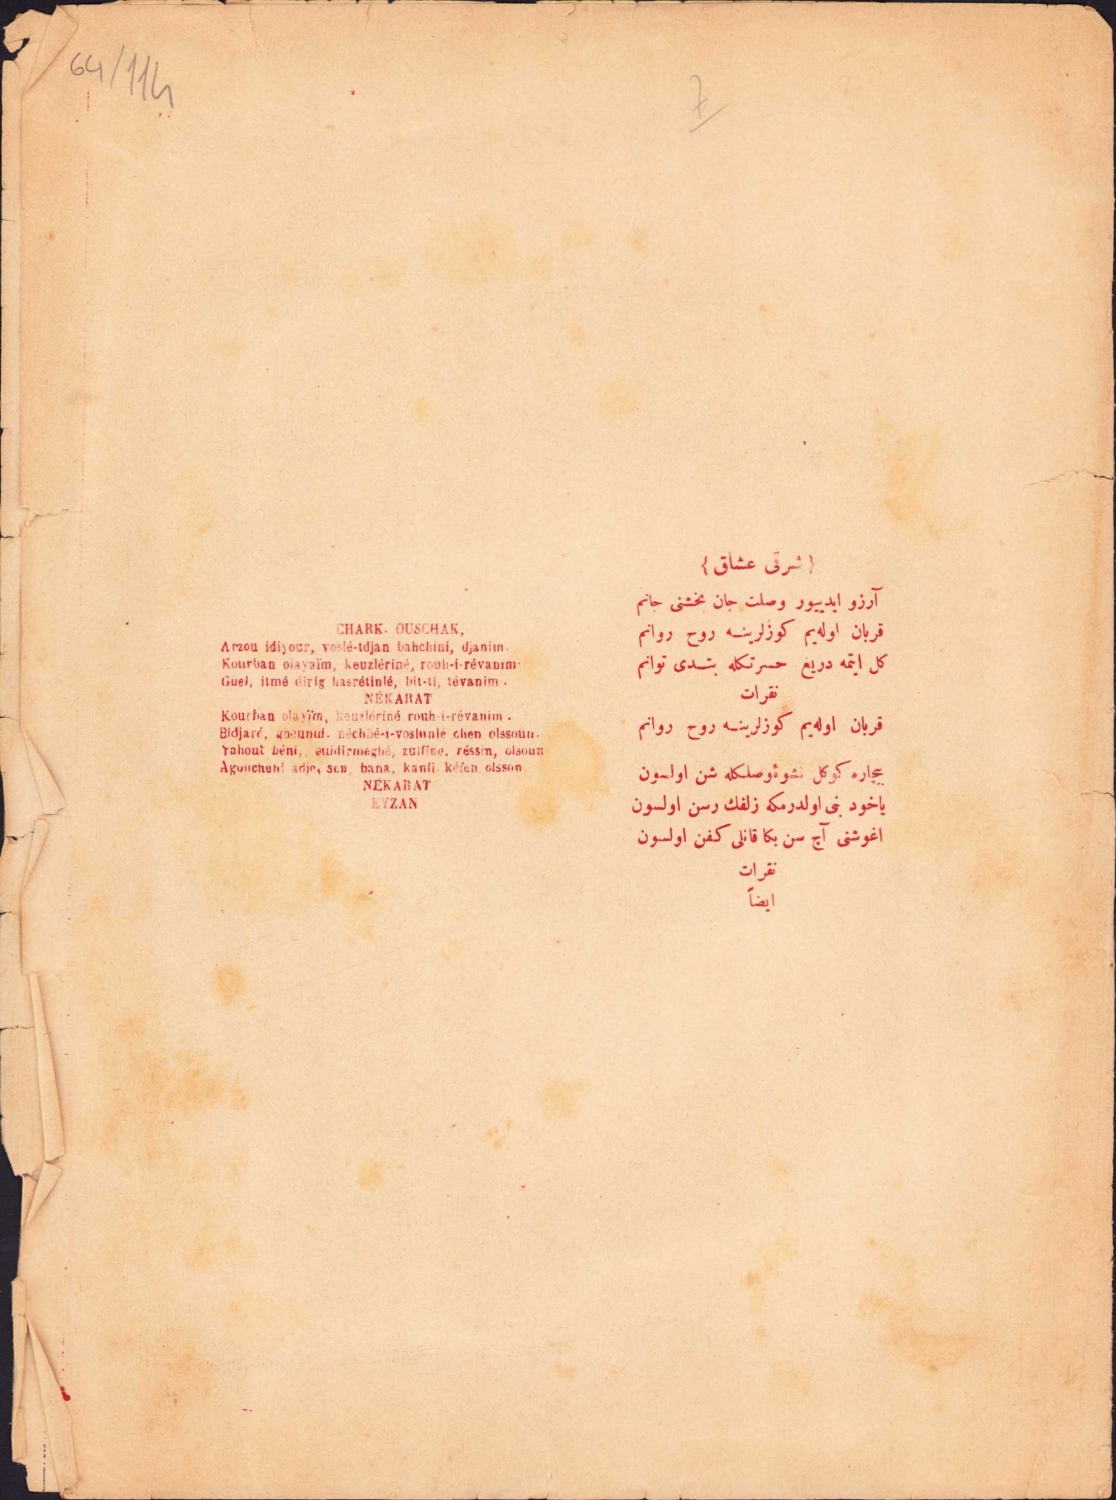 64/114
7
CHARK. OUSCHAK,
Arzou idiyour, voslé-tdjan bahchini, djanim.
Kourban olayaïm, keuzlériné, rouh-i-révanım.
Guel, itmé dirig hasrétinlé, bit-ti, tévanim.
NÉKARAT
Kourban olayïm, keuzlériné rouh-i-révanim.
Bidjaré, gheunul. néchbé-i-voslunlé chen olssoun.
Yahout béni, euldirméghé, zulfine, réssin, olsoun
Agoucheni adje, sen, bana, kanli kéfen olsson
NÉKARAT
EYZAN
{شرقی عشاق}
آرزو ایدییور وصلت جان بخشنی جانم
قربان اوله‌یم کوزلرینــه روح روانم
کل ایتمه دریغ حسرتکله بتــدی توانم
نقرات
قربان اوله‌یم کوزلرینــه روح روانم
بیچاره کوکل نشوۀ وصلکله شن اولسون
یاخود بنی اولدرمکه زلفك رسن اولسون
اغوشنی آچ سن بکا قانلی کفن اولسون
نقرات
ایضاً